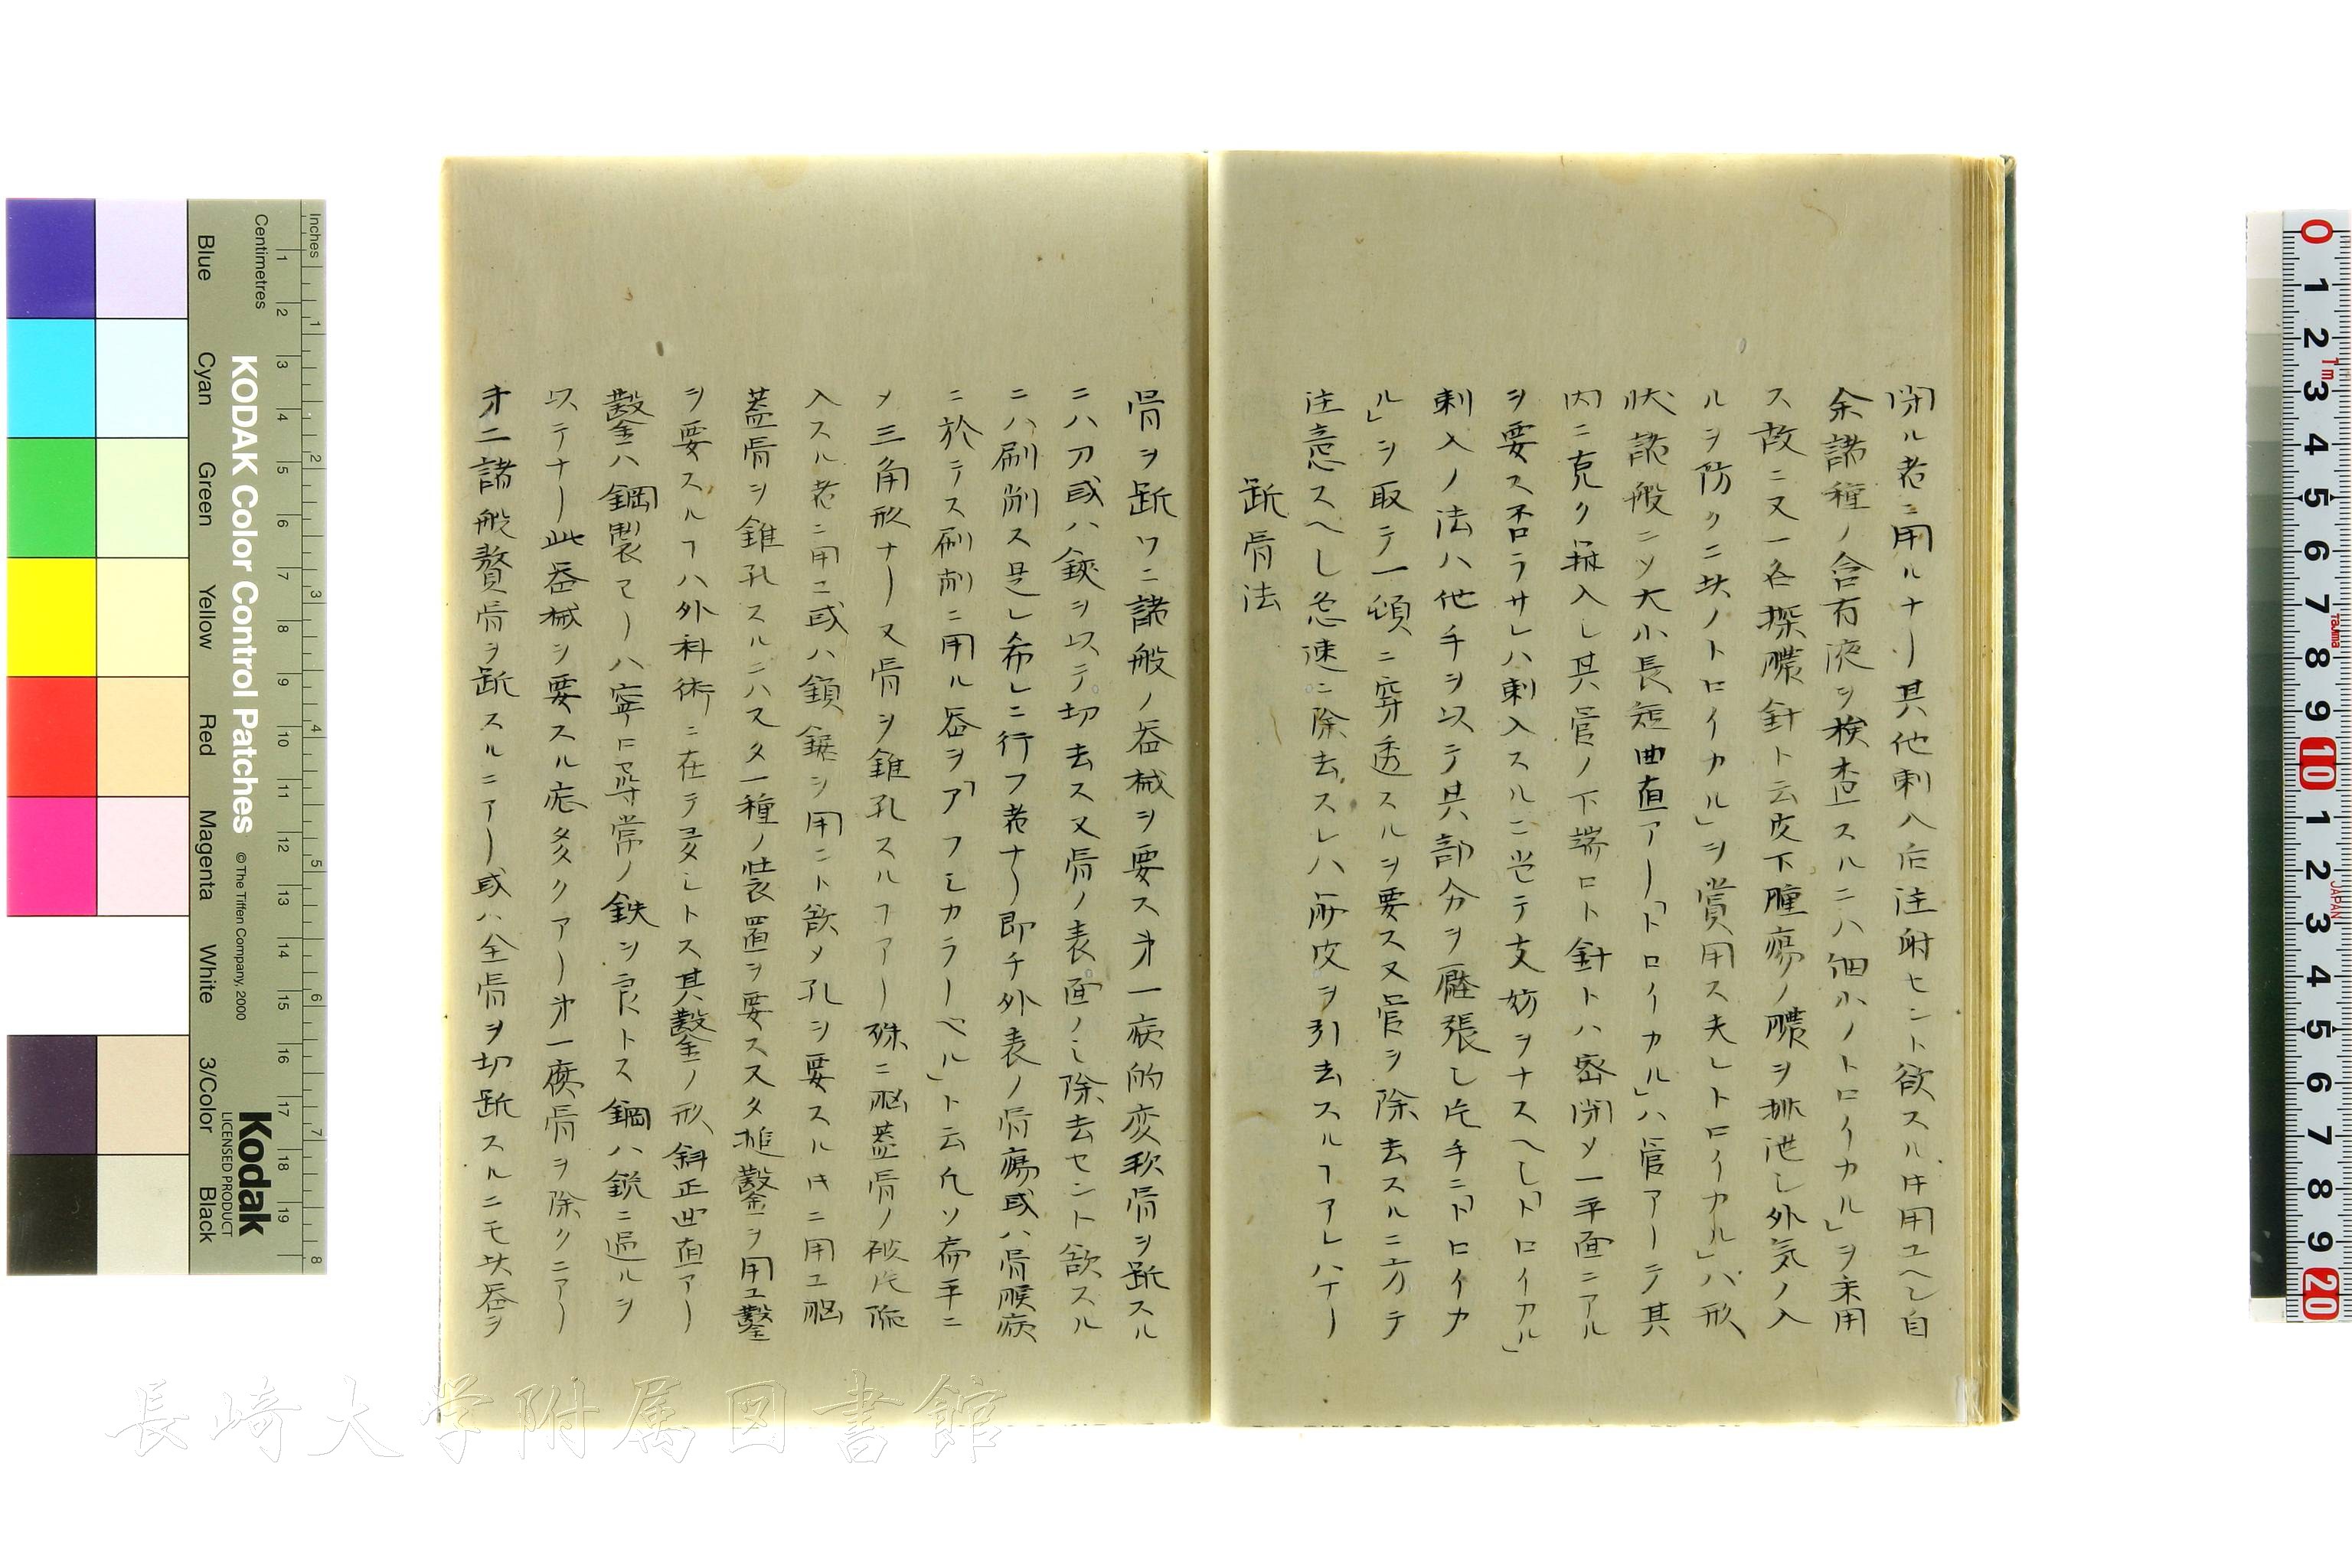 閉ル者ニ用ルナリ其他刺入后注射セント欲スル时用ユヘシ自
余諸種ノ含有液ヲ検査スルニハ細小ノトロイカル」ヲ未用
ス故ニ又一名探膿針ト云皮下腫瘍ノ膿ヲ排泄シ外気ノ入
ルヲ防クニ此ノトロイカル」ヲ賞用ス夫レトロイカル」ハ形
状諸般ニシテ大小長短曲直アリ「トロイカル」ハ管アリテ其
内ニ克ク挿入シ其管ノ下端ロト針トハ密閉メ一平面ニアル
ヲ要ス否ラサレハ刺入スルニ当テ支妨ヲナスヘシ「トロイカル」
刺入ノ法ハ他手ヲ以テ其部分ヲ緊張シ片手ニ「トロイカ
ル」ヲ取テ一頓ニ穿透スルヲ要ス又管ヲ除去スルニ方テ
注意スヘシ急速ニ除去スレハ両皮ヲ引去スルヿアレハナリ
斷骨法
骨ヲ斷ツニ諸般ノ器械ヲ要ス第一病的変軟骨ヲ斷スル
ニハ刀或ハ鋏ヲ以テ切去ス又骨ノ表面ノミ除去セント欲スル
ニハ刷削ス是レ希レニ行フ者ナリ即チ外表ノ骨瘍或ハ骨腐病
ニ於テス刷削ニ用ル器ヲ「アフレカラーベル」ト云凡ソ扁平ニ
メ三角形ナリ又骨ヲ錐孔スルヿアリ殊ニ脳蓋骨ノ被片除
入スル者ニ用ユ或ハ鎖鋸ヲ用ント欲メ孔ヲ要スル时ニ用ユ脳
蓋骨ヲ錐孔スルニハ又タ一種ノ装置ヲ要ス又タ槌鑿ヲ用ユ鑿
ヲ要スルヿハ外科術ニ在テ多シトス其鑿ノ形斜正曲直アリ
鑿ハ鋼製アリハ寧ロ尋常ノ鉄ヲ良トス鋼ハ鋭ニ過ルヲ
以テナリ此器械ヲ要スル症多クアリ第一腐骨ヲ除クニアリ
第二諸般贅骨ヲ斷スルニアリ或ハ全骨ヲ切斷スルニモ此器ヲ
KODAK Color Control Patches
©The Tiffen Company, 2000
Kodak
LICENSED PRODUCT
Inches
Centimetres
Blue
Cyan
Green
Yellow
Red
Magenta
White
3/Color
Black
長崎大学附属図書館